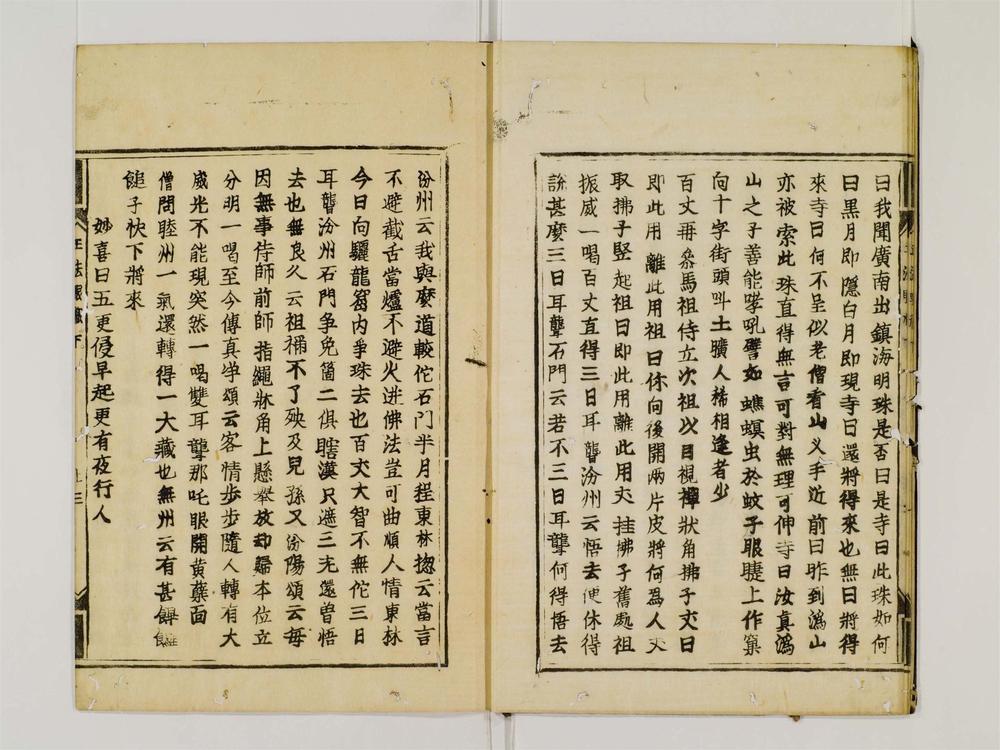 曰我聞廣南出鎮海明珠是否曰是寺曰此珠如何
曰黑月即隱白月即現寺曰還將得來也無曰將得
來寺曰何不呈似老僧看山叉手近前曰昨到溈山
亦被索此珠直得無言可對無理可伸寺曰汝真溈
山之子善能哮吼譬如蟭螟虫於蚊子眼睫上作窠
向十字街頭叫土曠人稀相逢者少
百丈再叅馬祖侍立次祖以目視禅狀角拂子丈曰
即此用離此用祖曰你向後開兩片皮將何爲人丈
取拂子竪起祖曰即此用離此用丈挂拂子舊處祖
振威一喝百丈直得三日耳聾汾州云悟去便休得
說甚麼三日耳聾石門云若不三日耳聾何得悟去
汾州云我與麼道較佗石門半月程東林揔云當言
不避截舌當爐不避火迸佛法豈可曲順人情東林
今日向驪龍窟內爭珠去也百丈大智不無佗三日
耳聾汾州石門爭免箇二俱瞎漢只遮三光還曽悟
去也無良久云祖禰不了殃及兒孫又汾陽頌云每
因無事侍師前師指繩牀角上懸舉放却歸本位立
分明一喝至今傳真淨頌云客情歩歩隨人轉有大
威光不能現突然一喝雙耳聾那吒眼開黃蘗面
僧問睦州一氣還轉得一大藏也無州云有甚饆饠
䭔子快下將來
妙喜曰五更侵早起更有夜行人
正法眼藏下